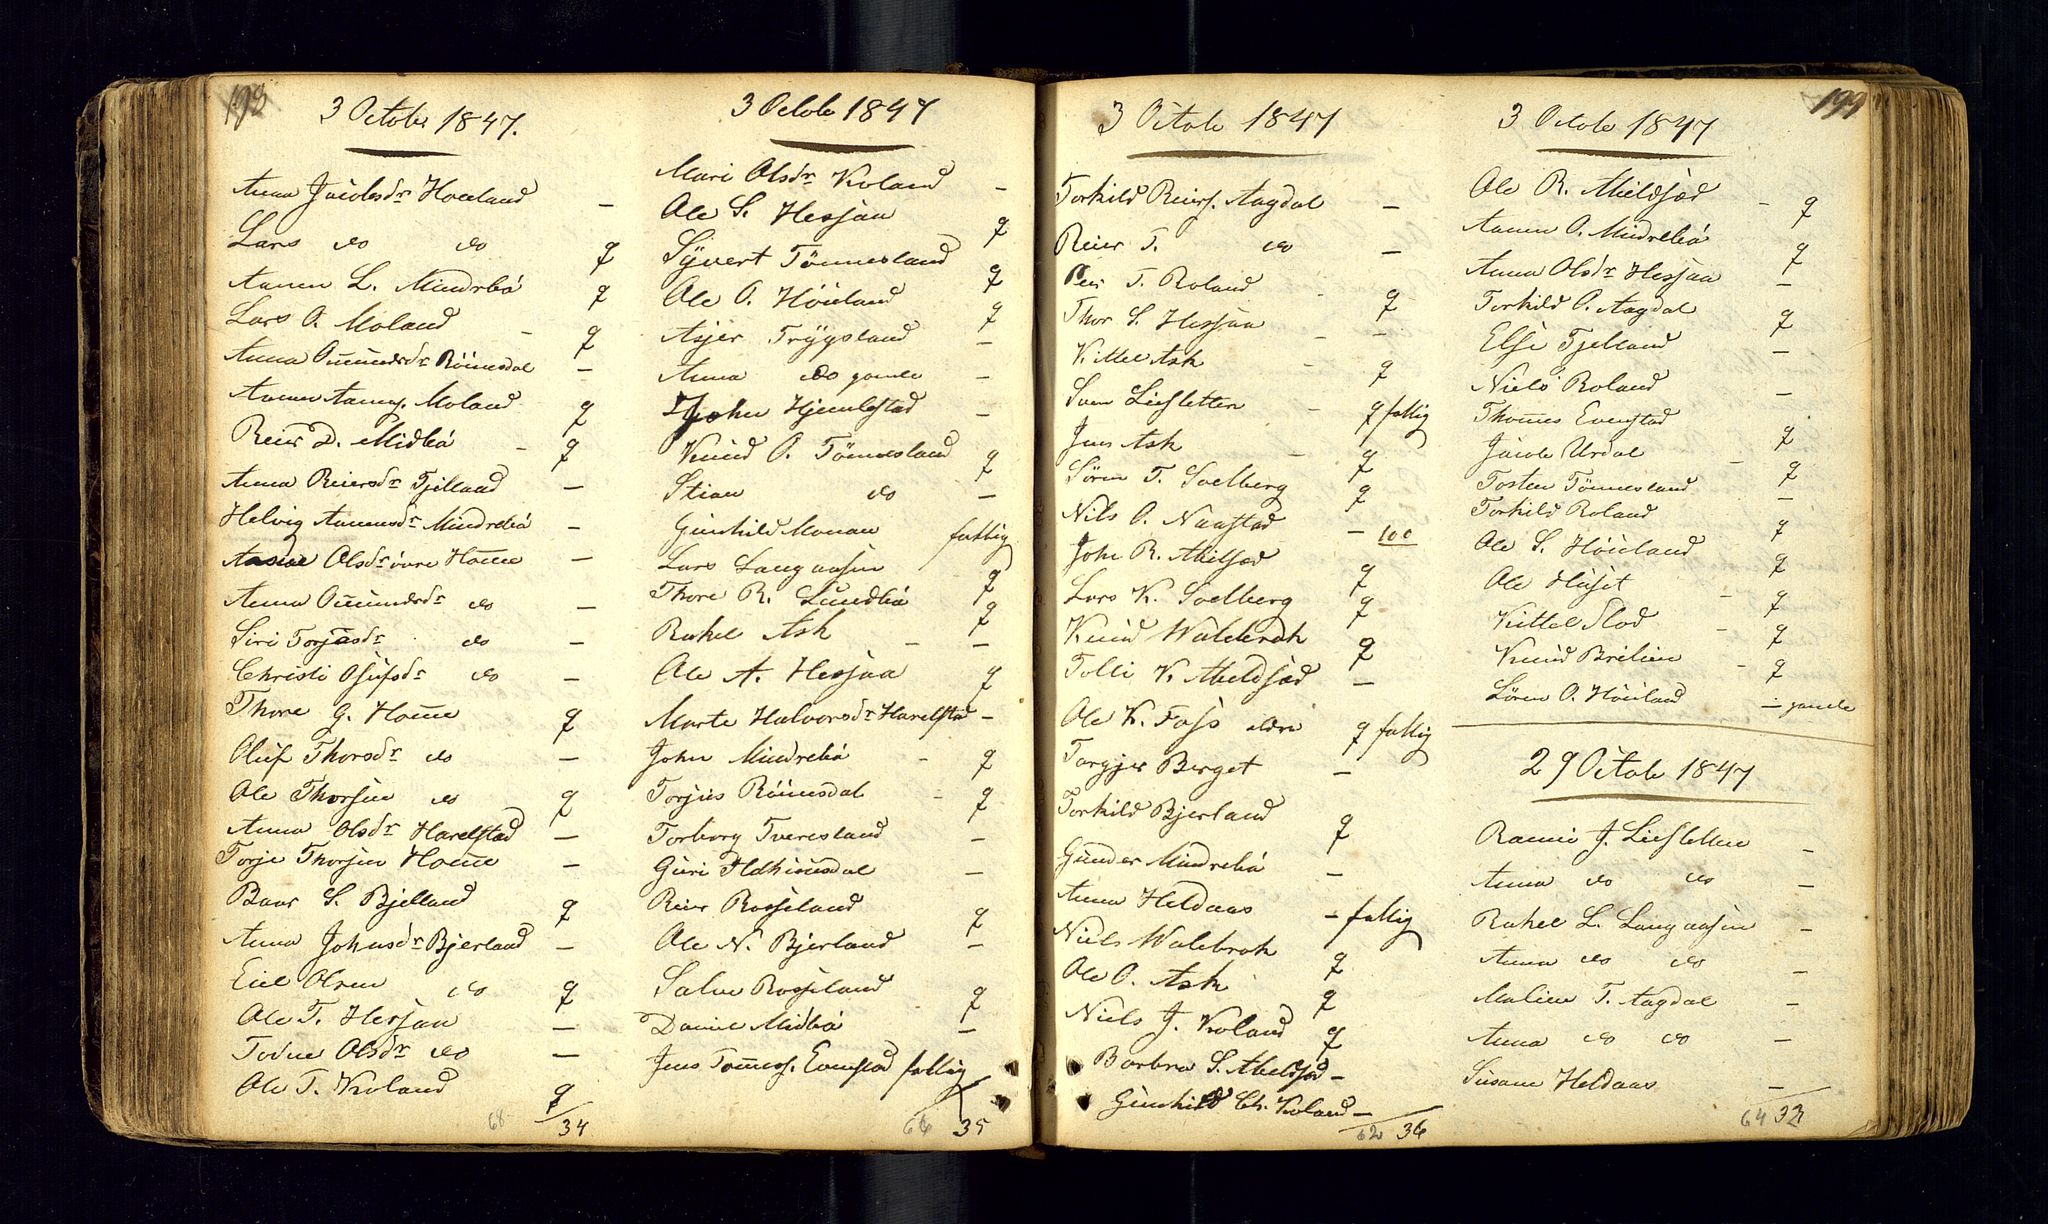 198
3 Octobr 1847.
Anna Jacobsdr Houland –
Lars do do q
Aanen L. Mindrebö q
Lars O. Moland – q
Anna Omundsdr Röinesdal –
Aanen Aanens. Moland q
Reier D. Midbö – q
Anna Reiersdr Fjelland –
Helvig Aanensdr Mindrebö –
Olsdr övre Home –
Anna Omundsdr do –
Siri Torjusdr do –
Christi Olufsdr do –
Thore G. Home q
Oluf Thorsdr do –
Ole Thorsen do q
Anna Olsdr Harelstad –
Torje Thorsen Home –
Baar S. Bjelland q
Anna Johnsdr Bjerland –
Eiel Olsen do q
Ole T. Hesjaa –
Todne Olsdr do –
Ole T. Kroland q
68 34
3 Octobr 1847
Mari Olsdr Kroland –
Ole S. Hesjaa q
Syvert Tönnesland q
Ole O. Höiland q
Asjer Trygsland –
Anna do gamle –
John Hjemlestad –
Knud O. Tönnesland q
Stian do –
Gunhild Monan fattig
Lars Langaasen q
Thore R. Lundbö q
Rakel Ask – –
Ole A. Hesjaa q
Marte Halvorsdr Harelstad –
John Mindrebö – q
Torjus Röinesdal – q
Torborg Tveresland –
Guri Hathinesdal –
Reier Rosseland q
Ole N. Bjerland –
Salve Rosseland q
Daniel Midbö –
Jens Tönness. Evenstad fattig
66 35
3 Octob 1847
Torkild Reiers. Aagdal –
Reier T. do –
Peer T. Roland – q
Thor S. Hesjaa – –
Kittel Ask – q
Sven Liesletten – q fattig
Jens Ask – q
Sören T. Solberg q
Nils O. Naastad – 100
John R. Abilsæd q
Lars K. Solberg q
Knud Walebrok q
Tolli K. Abeldsæd –
Ole K. Foss eldre q fattig
Torgjer Berget –
Torkild Bjerland q
Gunder Mindrebö –
Anna Heldaas – fattig
Niels Walebrok q
Ole O. Ask q
Niels J. Kroland q
Barbra S. Abeldsæd –
Gunhild Ch. Kroland –
62 36
199
3 Octob 1847
Ole R. Abeldsæd – q
Aanen O. Mindrebö q
Anna Olsdr Hesjaa –
Torkild O. Aagdal q
Else Fjelland –
Niels Roland –
Thomes Evenstad q
Jacob Urdal – q
Tosten Tönnesland –
Torkild Roland q
Ole S. Höiland q
Ole Huset – q
Kittel Flod – q
Knud Brelien – q
Sören O. Höiland – gamle
29 Octob 1847
Rannei J. Liesletten –
Anna do do –
Rakel L. Langaasen –
Anna do do –
Malene T. Aagdal –
Anna do do –
Susane Heldaas –
64 32